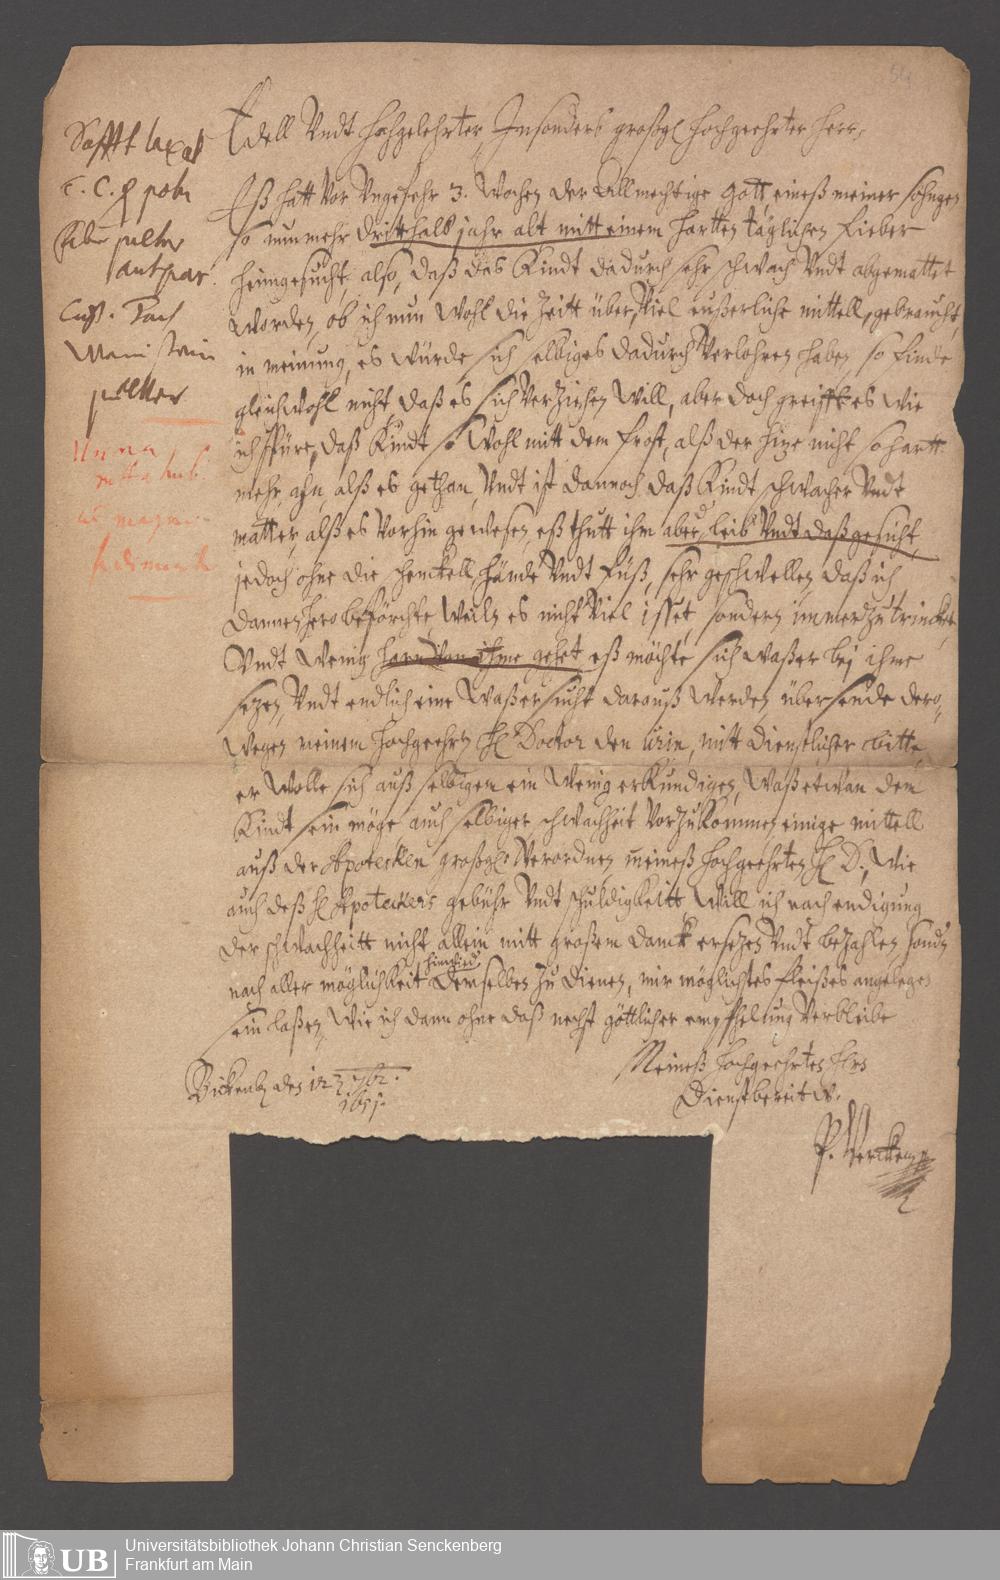 54
Edell Undt Hochgelehrter, Insonders großgl. Hochgeehrter Herr,
Eß hatt Vor Ungefehr 3. Wochen der Allmechtige Gott eineß meiner söhngen
so nunmehr dritthalb jahr alt mitt einem hartten täglichen Fieber
heimgesucht, also, daß das Kindt dadurch sehr schwach Undt abgemattet
worden, ob ich nun Wohl die Zeitt über, Viel eußerliche mittell, gebraucht,
in meinung, es würde sich selbiges dadurch Verlohren haben, so finde
gleichwohl nicht, daß es sich Verziehen Will, aber doch greifft es wie
ich spüre, daß Kindt so Wohl mitt dem frost, alß der hize nicht so hartt
mehr ahn, alß es gethan, Undt ist dannoch daß Kindt schwacher Undt
matter, alß es Vorhin gewesen, eß thutt ihm aber der leib Undt daß gesicht,
jedoch ohne die schenckell, hände Undt Füß, sehr geschwellen, daß ich
dannenhero beförchte, Weiln es nicht Viel isset, sondern immerzu trincket,
Undt Wenig harn Von ihme gehet eß möchte sich waßer bej ihme
sezen, Undt endlich eine Waßersucht darauß werden, übersende dero,
Wegen meinem Hochgeehrten H. Doctor den urin, mitt dienstlicher bitte,
er Wolle sich auß selbigen ein Wenig erkundigen, waß etwan dem
Kindt sein möge auch selbiger schwachheit Vorzukommen einige mittell
auß der Apotecken großgl. Verordnen, meineß Hochgeehrten H. D., wie
auch deß H. Apoteckers gebühr Undt schuldigkeitt Will ich nach endigung
der schwachheitt nicht allein mitt großem danck ersezen Undt bezahlen, sondn
nach aller möglichkeit hinwied demselben zu dienen, mir möglichstes fleißes angelegen
sein laßen, Wie ich dann ohne daß nechst göttlicher empfhelung Verbleibe
Meineß Hochgeehrten Hrs
Bickenb. den 12 7br.
1651.
Dienstbereit W.
P.
Safft laxat
C. C. pobr
Feber pulver
antpar
pulver
Urina
UB
Universitätsbibliothek Johann Christian Senckenberg
Frankfurt am Main